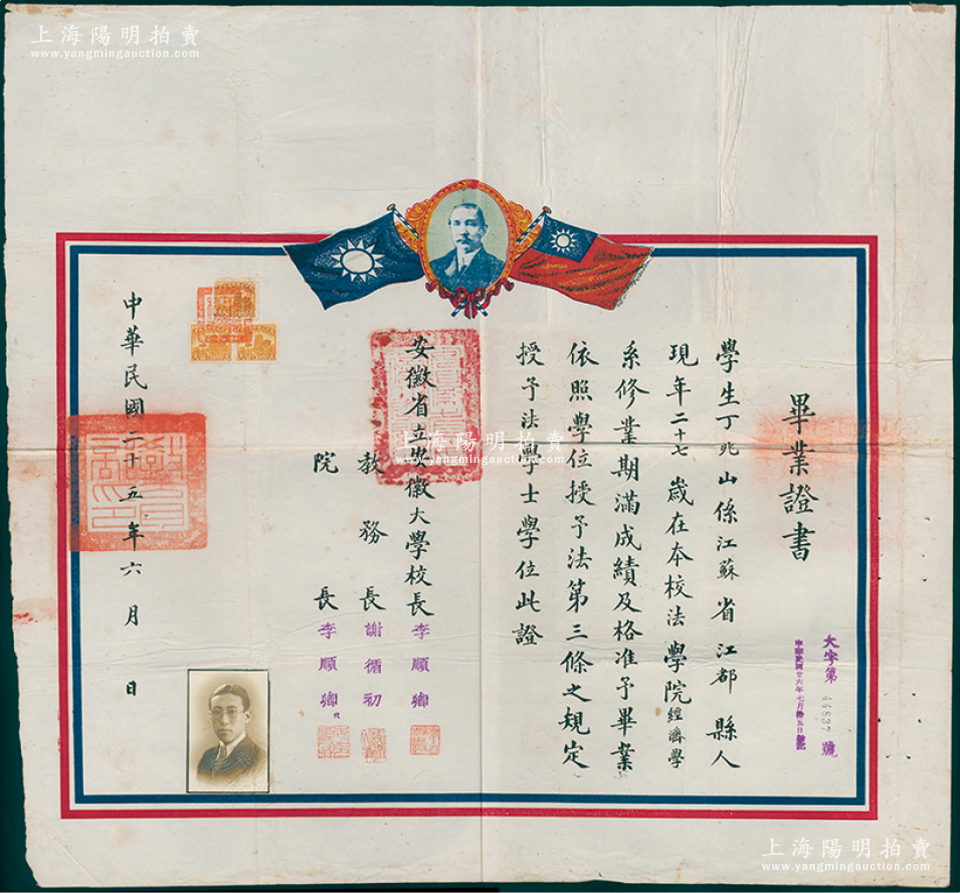 上海陽明拍賣
www.yangmingauction.com
畢業證書
大字第44637號
中華民國廿六年七月拾五日
學生丁兆山係江蘇省江都縣人
現年二十七歲在本校法學院經濟學
系修業期滿成績及格准予畢業
依照學位授予法第三條之規定
授予法學士學位此證
安徽省立安徽大學校長李順卿
教務長謝循初
院長李順卿代
中華民國二十五年六月日
上海陽明拍賣
www.yangmingauction.com